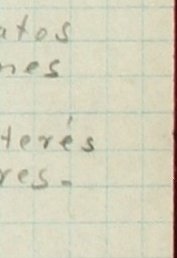 atos
nes
terés
res.-